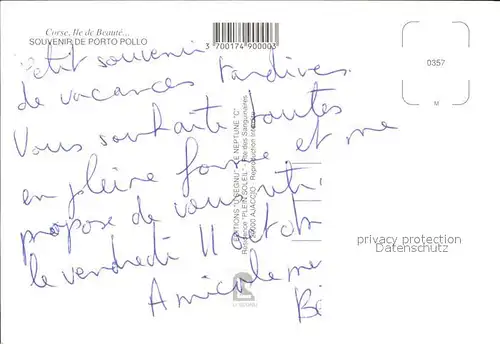 Corse, Ile de Beauté...
SOUVENIR DE PORTO POLLO
3 700174 900003
0357
M
Petit souvenir
de vacances tardives.
Vous souhaite toutes
en pleine forme et me
propose de vous
le vendredi 11 octob
Amicaleme
Bé
EDITIONS "U SEGNU" - LE NEPTUNE "C"
Résidence "PLEIN SOLEIL" - Rte des Sanguinaires
20000 AJACCIO - Reproduction Interdite
privacy protection
Datenschutz